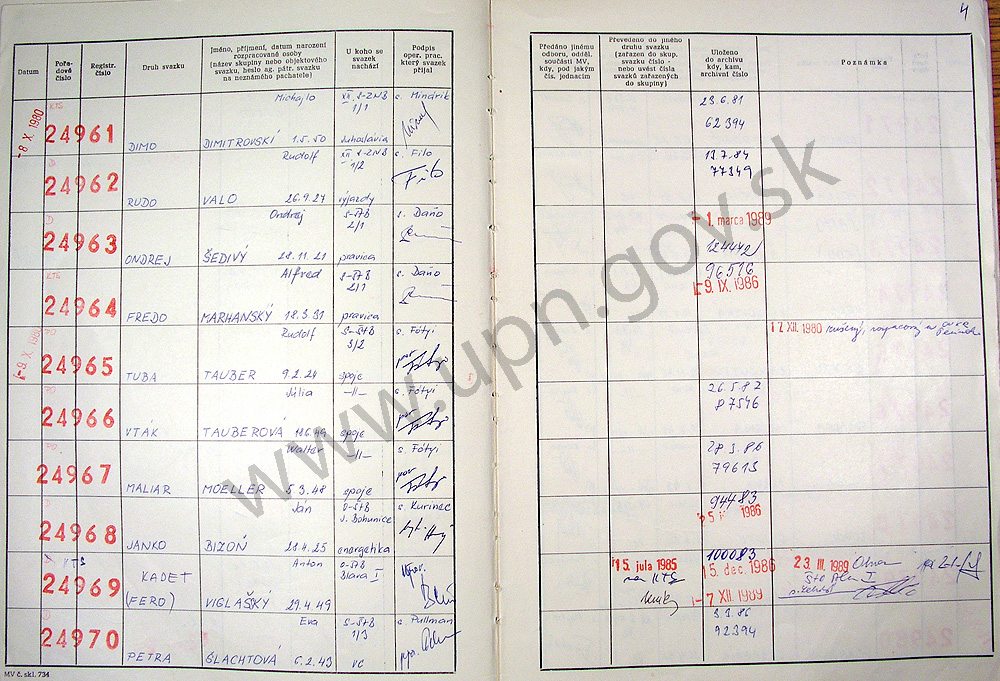 4
Datum
Pořadové číslo
Registr. číslo
Druh svazku
Jméno, příjmení, datum narození rozpracované osoby (název skupiny nebo objektového svazku, heslo ag. pátr. svazku na neznámého pachatele)
U koho se svazek nachází
Podpis oper. prac. který svazek přijal
Předáno jinému odboru, odděl. součásti MV, kdy, pod jakým čís. jednacím
Převedeno do jiného druhu svazku (zařazen do skup. svazku číslo - nebo uvést čísla svazků zařazených do skupiny)
Uloženo do archivu kdy, kam, archivní číslo
Poznámka
-8 X. 1980 KTS 24961 DIMO Michajlo DIMITROVSKÍ 1.5.50 XII. S-ZNB 1/1 Juhoslávia s. Mindrik
23.6.81
62394
D 24962 RUDO Rudolf VALO 26.9.27 XII S-ZNB 1/2 výjazdy s. Filo
13.7.84
77349
D 24963 ONDREJ Ondrej ŠEDIVÝ 28.11.21 S-ŠtB 2/1 pravica s. Daňo
- 1. marca 1989
124442
KTS 24964 FREDO Alfred MARHANSKÝ 18.3.31 S-ŠtB 2/1 pravica s. Daňo
96516
- 9. IX. 1986
-9. X. 1980 PO 24965 TUBA Rudolf TAUBER 9.2.24 S-ŠtB 3/2 spoje s. Fótyi
17 XII. 1980
PO 24966 VTÁK Júlia TAUBEROVÁ -||- spoje s. Fótyi
26.5.87
87546
PO 24967 MALIAR Walter MOELLER 5.3.48 -||- spoje s. Fótyi
28 3. 86
79613
24968 JANKO Ján BIZOŇ 28.4.25 O-ŠtB s. Bohunice energetika s. Kurinec
94483
1986
KTS 24969 KADET (FERO) Anton VIGLAŠSKÝ 29.4.49 O-ŠtB Blava I
15. jula 1985 na KTS
100083
15. dec. 1986
-7 XII. 1989
23. III. 1989
24970 PETRA Eva ŠLACHTOVÁ 6.2.43 S-ŠtB 1/3 VC s. Pullman
3.3.86
92394
www.upn.gov.sk
MV č. skl. 734